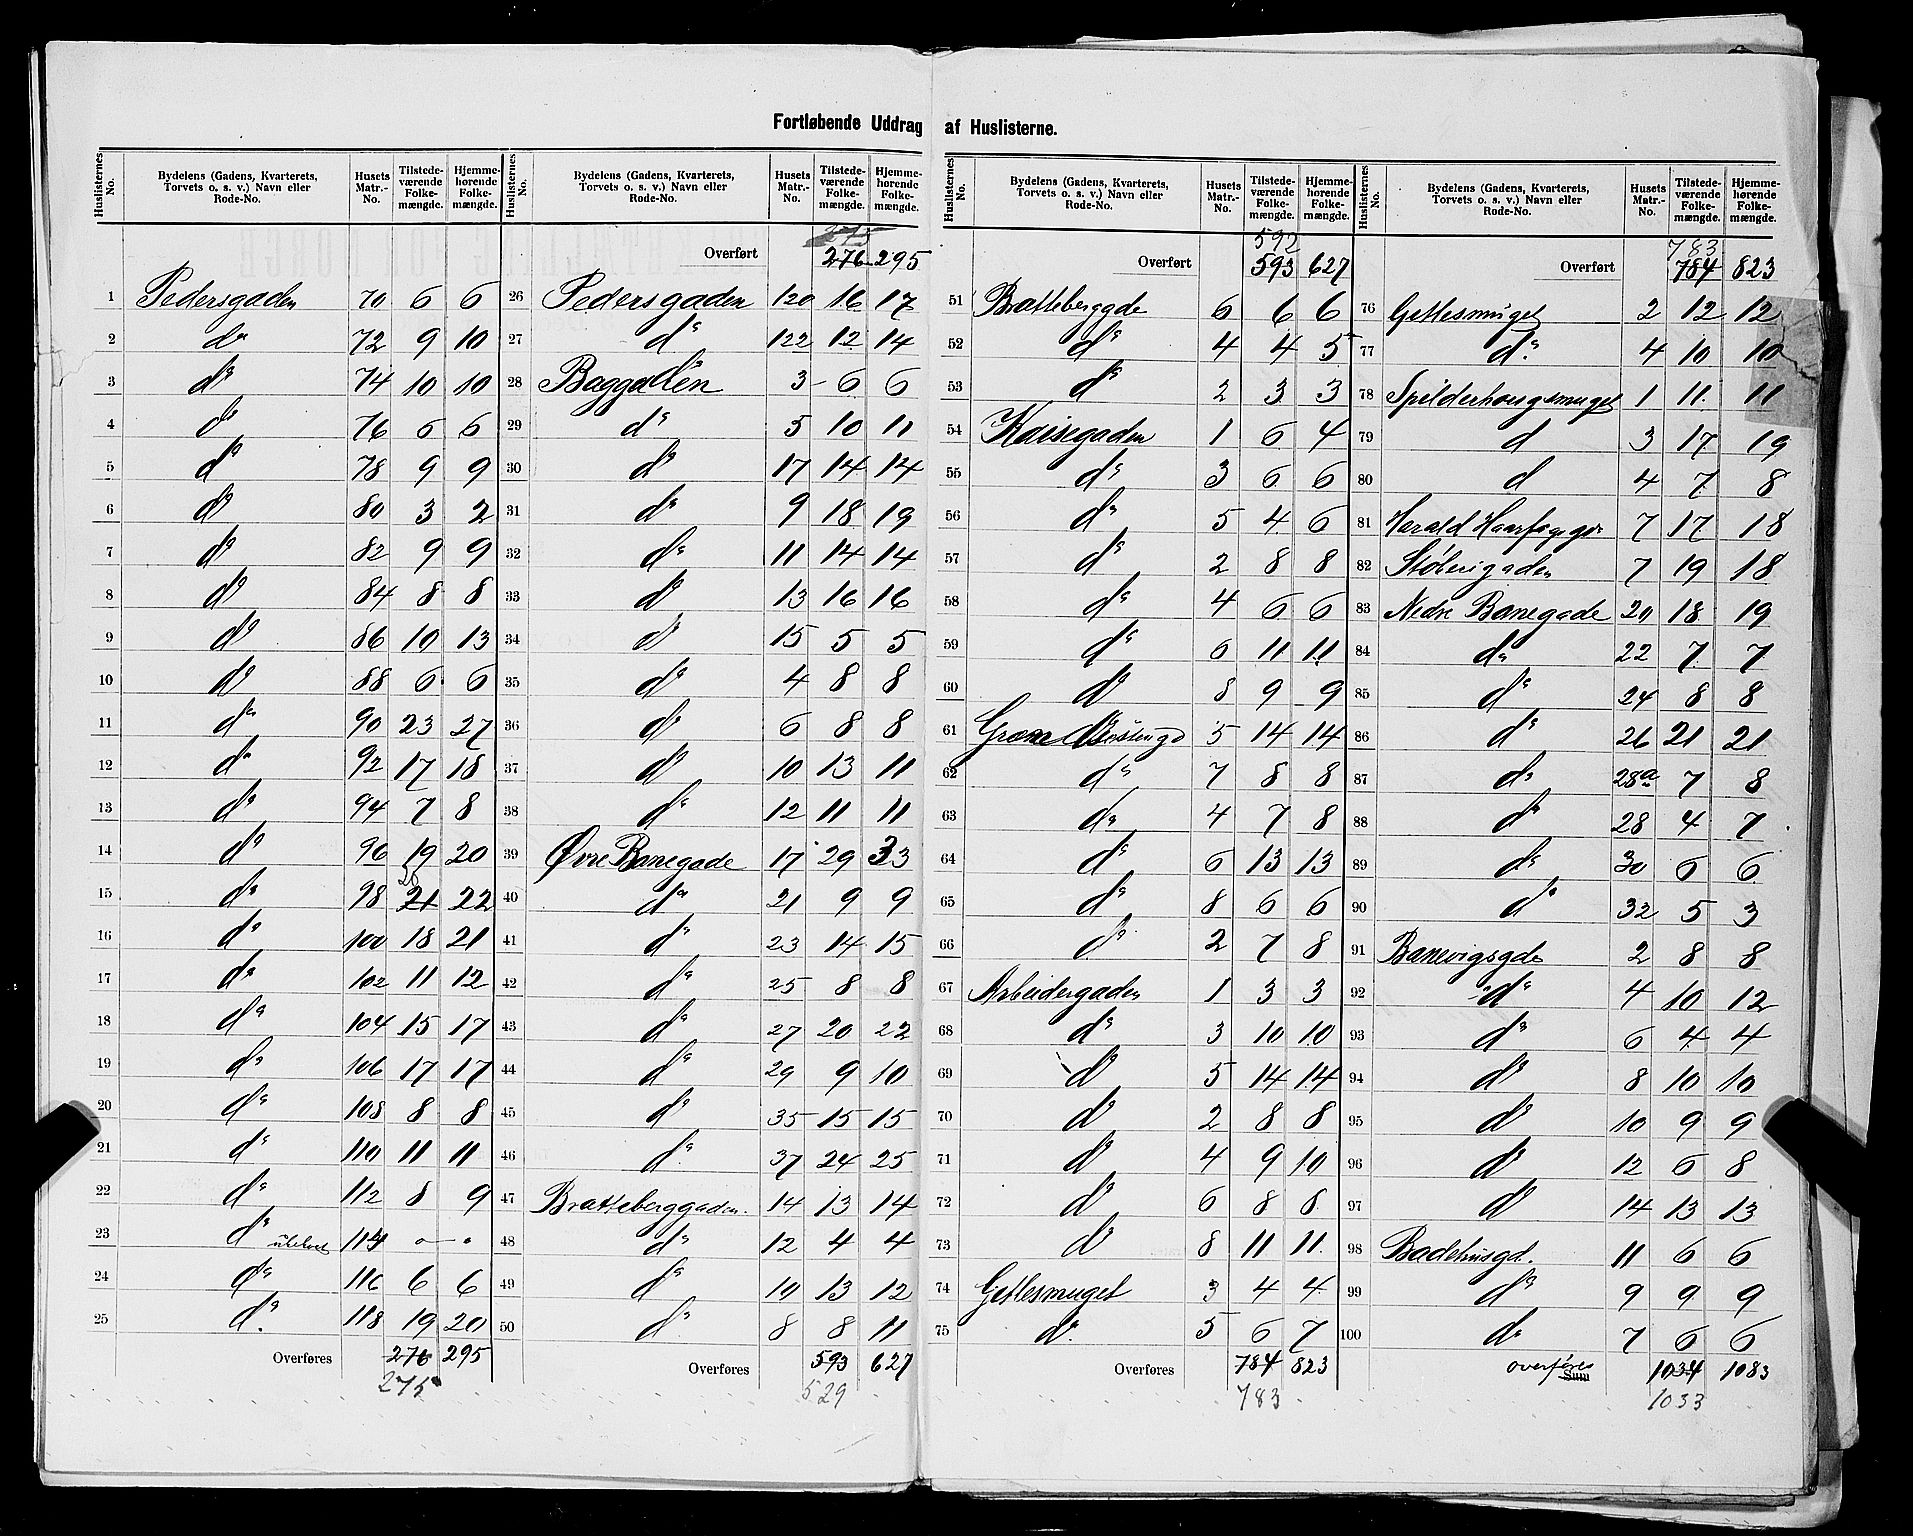 Fortløbende Uddrag af Huslisterne.
Huslisternes No. | Bydelens (Gadens, Kvarterets, Torvets o. s. v.) Navn eller Rode-No. | Husets Matr.-No. | Tilstedeværende Folkemængde. | Hjemmehørende Folkemængde.
1 Pedersgaden 70 6 6
2 do 72 9 10
3 do 74 10 10
4 do 76 6 6
5 do 78 9 9
6 do 80 3 2
7 do 82 9 9
8 do 84 8 8
9 do 86 10 13
10 do 88 6 6
11 do 90 23 27
12 do 92 17 18
13 do 94 7 8
14 do 96 19 20
15 do 98 21 20 22
16 do 100 18 21
17 do 102 11 12
18 do 104 15 17
19 do 106 17 17
20 do 108 8 8
21 do 110 11 11
22 do 112 8 9
23 do ubeboet 114 - -
24 do 116 6 6
25 do 118 19 20
Overføres 276 295
275
Huslisternes No. | Bydelens (Gadens, Kvarterets, Torvets o. s. v.) Navn eller Rode-No. | Husets Matr.-No. | Tilstedeværende Folkemængde. | Hjemmehørende Folkemængde.
275
Overført 276 295
26 Pedersgaden 120 16 17
27 do 122 12 14
28 Baggaden 3 6 6
29 do 5 10 11
30 do 17 14 14
31 do 9 18 19
32 do 11 14 14
33 do 13 16 16
34 do 15 5 5
35 do 4 8 8
36 do 6 8 8
37 do 10 13 11
38 do 12 11 11
39 Øvre Banegade 17 29 33
40 do 21 9 9
41 do 23 14 15
42 do 25 8 8
43 do 27 20 22
44 do 29 9 10
45 do 35 15 15
46 do 37 24 25
47 Bratteberggaden. 14 13 14
48 do 12 4 4
49 do 10 13 12
50 do 8 8 11
Overføres 593 627
529
Huslisternes No. | Bydelens (Gadens, Kvarterets, Torvets o. s. v.) Navn eller Rode-No. | Husets Matr.-No. | Tilstedeværende Folkemængde. | Hjemmehørende Folkemængde.
592
Overført 593 627
51 Bratteberggde 6 6 6
52 do 4 4 5
53 do 2 3 3
54 Kaisegaden 1 6 4
55 do 3 6 6
56 do 5 4 6
57 do 2 8 8
58 do 4 6 6
59 do 6 11 11
60 do 8 9 9
61 5 14 14
62 do 7 8 8
63 do 4 7 8
64 do 6 13 13
65 do 8 6 6
66 do 2 7 8
67 Arbeidergaden 1 3 3
68 do 3 10 10
69 do 5 14 14
70 do 2 8 8
71 do 4 9 10
72 do 6 8 8
73 do 8 11 11
74 Gjetlesmuget 3 4 4
75 do 5 6 7
Overføres 784 823
783
Huslisternes No. | Bydelens (Gadens, Kvarterets, Torvets o. s. v.) Navn eller Rode-No. | Husets Matr.-No. | Tilstedeværende Folkemængde. | Hjemmehørende Folkemængde.
783
Overført 784 823
76 Gjetlesmuget 2 12 12
77 do 4 10 10
78 Spilderhougsmuget 1 11 11
79 d 3 17 19
80 d 4 7 8
81 Harald Haarfagsgd 7 17 18
82 Støberigaden 7 19 18
83 Nedre Banegade 20 18 19
84 do 22 7 7
85 do 24 8 8
86 do 26 21 21
87 do 28a 7 8
88 do 28 4 7
89 do 30 6 6
90 do 32 5 3
91 Banevigsgde 2 8 8
92 do 4 10 12
93 do 6 4 4
94 do 8 10 10
95 do 10 9 9
96 do 12 6 8
97 do 14 13 13
98 Badehusgd. 11 6 6
99 do 9 9 9
100 do 7 6 6
overføres Sum 1034 1083
1033